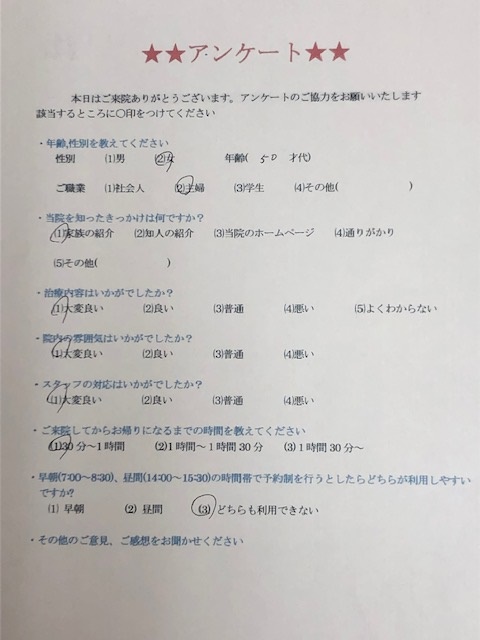 ★★アンケート★★
本日はご来院ありがとうございます。アンケートのご協力をお願いいたします
該当するところに〇印をつけてください
・年齢,性別を教えてください
性別 (1)男 (2)女 年齢( 50 才代)
ご職業 (1)社会人 (2)主婦 (3)学生 (4)その他( )
・当院を知ったきっかけは何ですか？
(1)家族の紹介 (2)知人の紹介 (3)当院のホームページ (4)通りがかり
(5)その他( )
・治療内容はいかがでしたか？
(1)大変良い (2)良い (3)普通 (4)悪い (5)よくわからない
・院内の雰囲気はいかがでしたか？
(1)大変良い (2)良い (3)普通 (4)悪い
・スタッフの対応はいかがでしたか？
(1)大変良い (2)良い (3)普通 (4)悪い
・ご来院してからお帰りになるまでの時間を教えてください
(1)30分〜1時間 (2)1時間〜1時間30分 (3)1時間30分〜
・早朝(7:00〜8:30)、昼間(14:00〜15:30)の時間帯で予約制を行うとしたらどちらが利用しやすい
ですか?
(1) 早朝 (2) 昼間 (3) どちらも利用できない
・その他のご意見、ご感想をお聞かせください